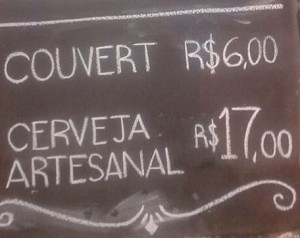 COUVERT R$6,00
CERVEJA
ARTESANAL R$17,00